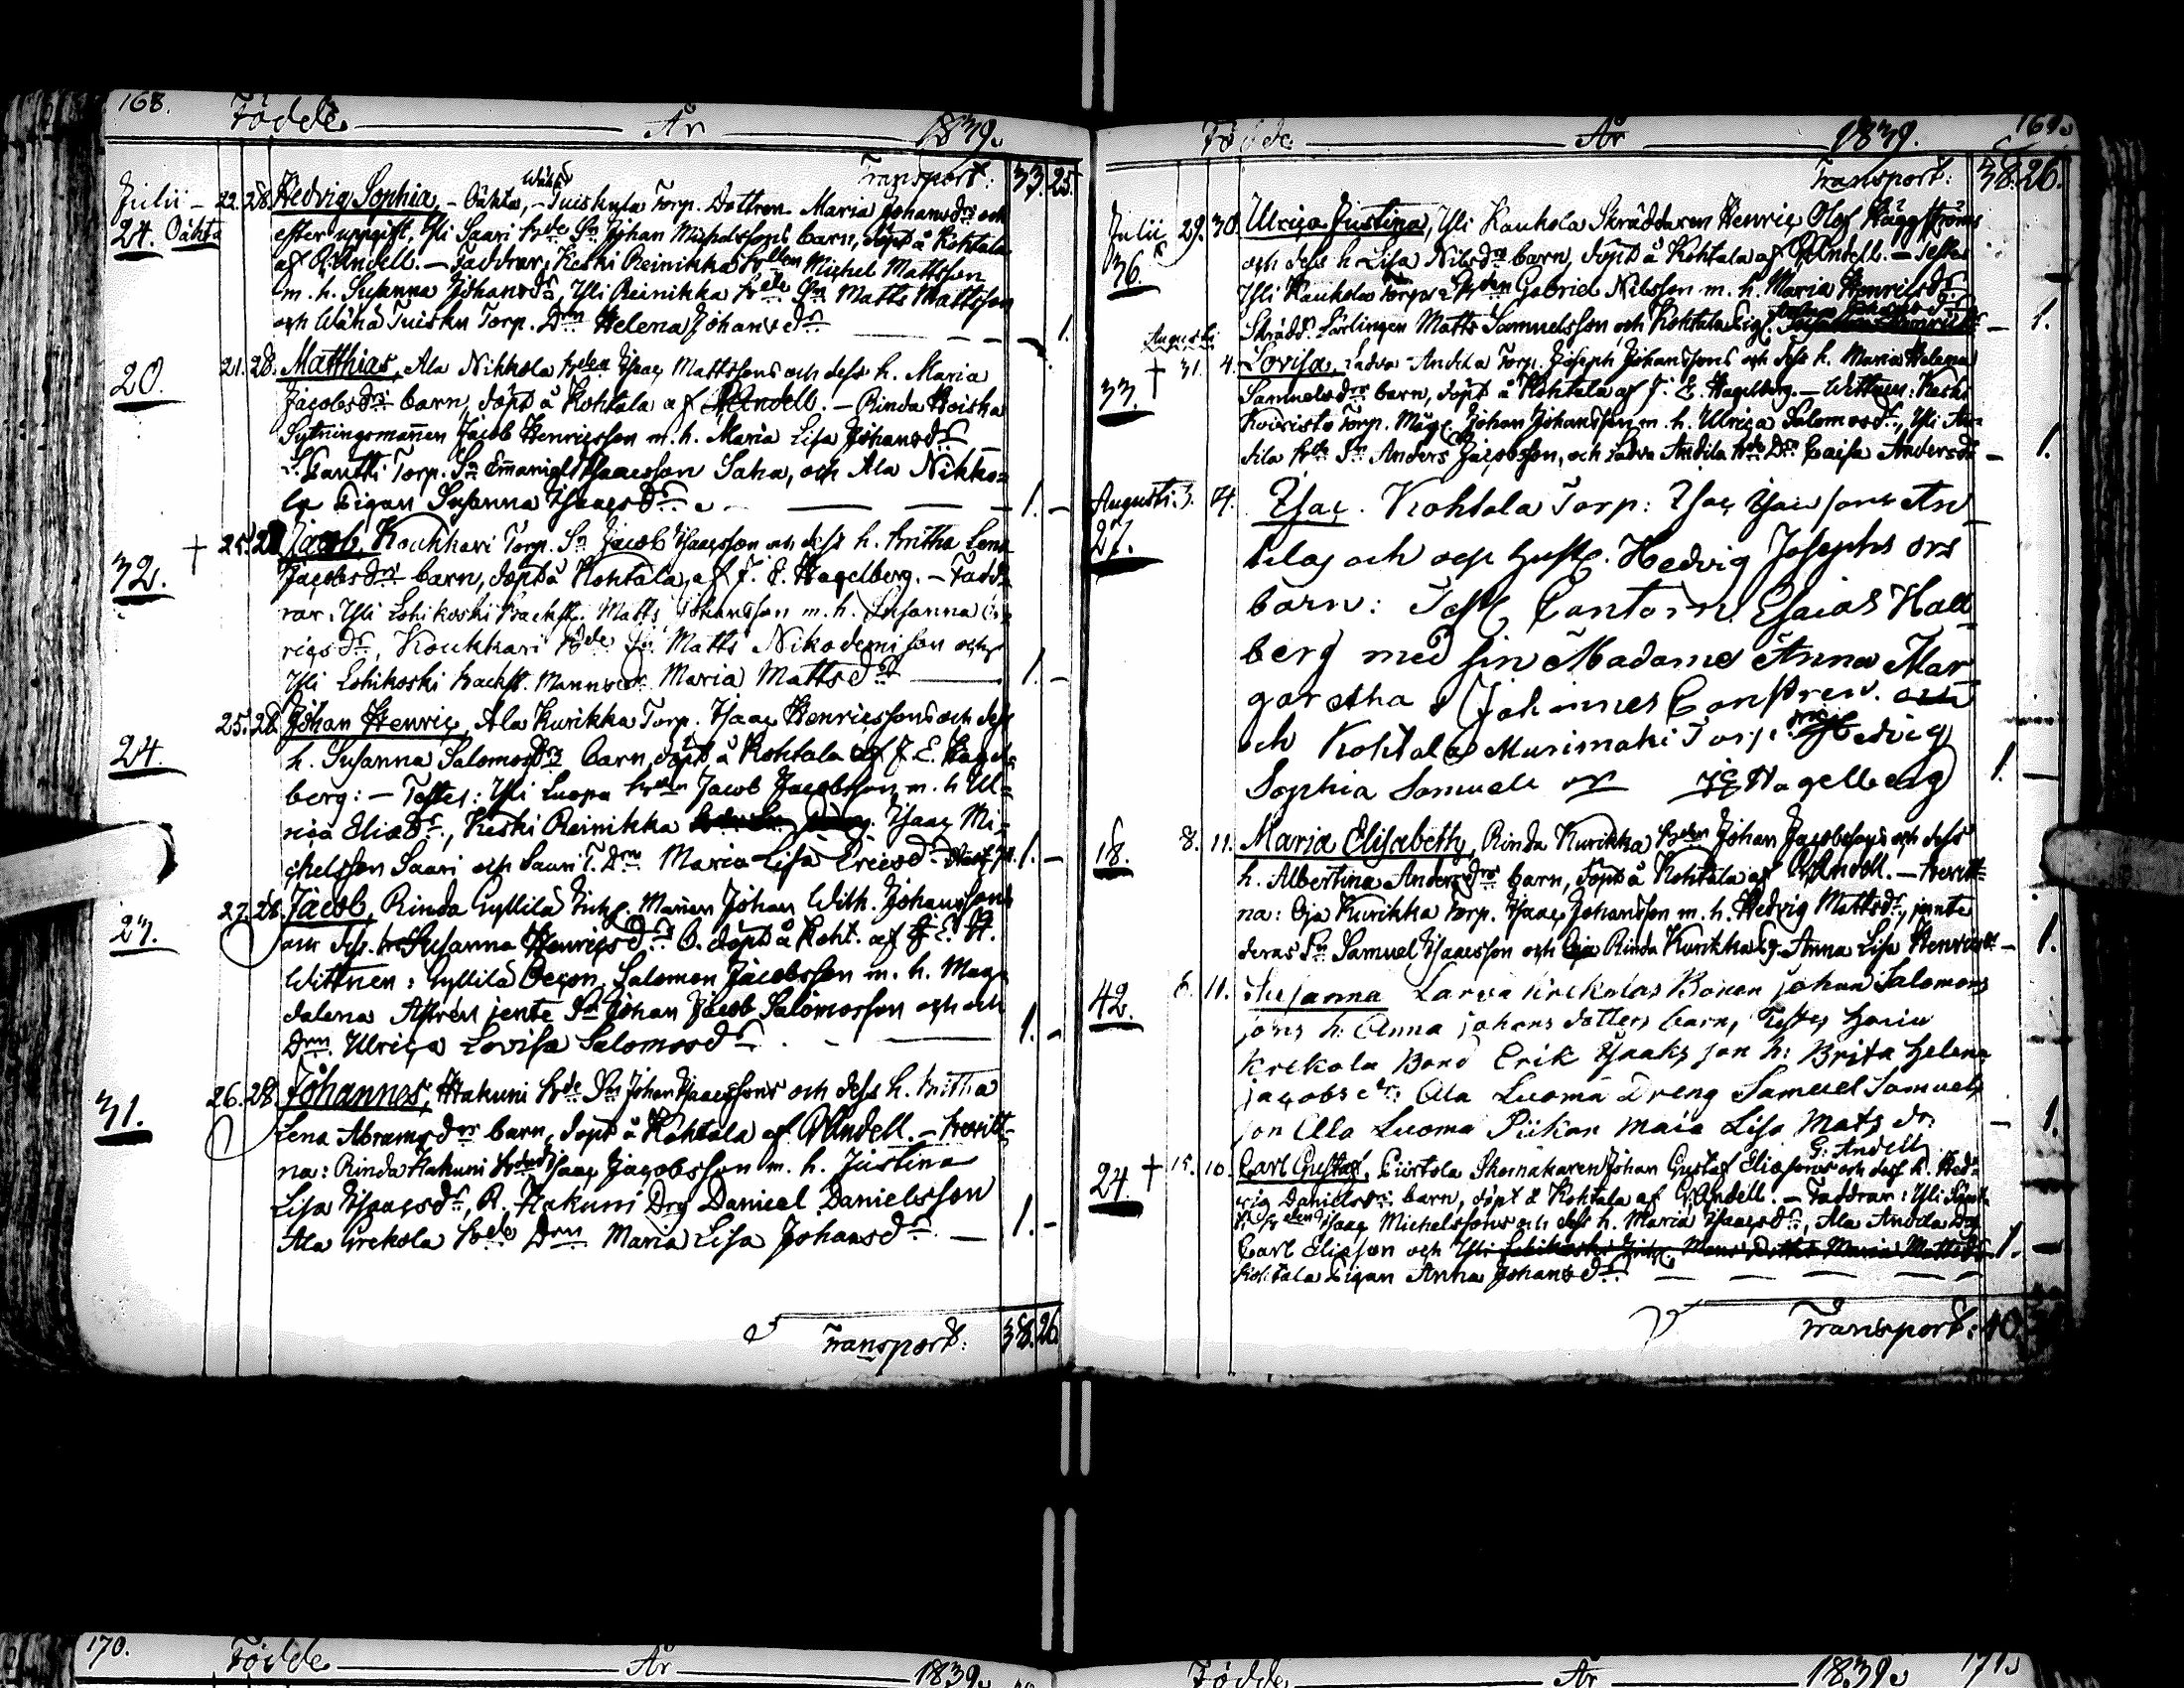 168. Födde År 1839.
Transport: 33. 25.
Julii – 22. 28. Hedvig Sophia, – Oähta, – Wäha Tuiskula Torp. Dottren Maria Johansdrs och
24. Oähta efter uppgift, Yli Saari Bde Sn Johan Michelssons barn, döpt å Kohtala
af G. Andell. – Faddrar, Keski Reinikka Bden Michel Mattsson
m. h. Susanna Johansdr, Yli Reinikka Bde Sn Matts Mattsson
och Wäha Tuisku Torp. Drn Helena Johansdr – 1.
20. 21. 28. Matthias, Ala Nikkola Bden Isaac Mattssons och dess h. Maria
Jacobsdrs barn, döpt å Kohtala af G. Andell. – Rinda
Sytningsmannen Jacob Henricsson m. h. Maria Lisa Johansdr
Torp. Sn Emanuel Isaacsson Saha, och Ala Nikko=
la Pigan Susanna Isaacsdr. 1. –
32. † 25. 28. Jacob, Koukkari Torp. Sn Jacob Isaacsson och dess h. Britha Lena
Jacobsdrs barn, döpt å Kohtala, af J. E. Hagelberg. – Fadd=
rar: Yli Lohikoski Backst. Matts Johansson m. h. Susanna
ricsdr, Koukkari Bde Sn Matts Nikodemisson och
Yli Lohikoski backst. Manns dr Maria Mattsdr 1. –
24. 25. 28. Johan Henric, Ala Kurikka Torp. Isaac Henricssons och dess
h. Susanna Salomosdrs barn, döpt å Kohtala af J. E. Hagel=
berg: – Testes: Yli Luopa Bden Jacob Jacobsson m. h. Ul=
rica Eliædr., Keski Reinikka Isaac Mi=
chelsson Saari och Saari T. Drn Maria Lisa Ericsdr 1. –
27. 27. 28. Jacob, Rinda Gyllilä Inh. Mannen Johan Wilh. Johanssons
och dess h. Susanna Henricsdrs B. döpt å Koht. af J. E. H.
Wittnen: Gyllilä Salomon Jacobsson m. h. Mag=
dalena Astrén jemte Sn Johan Jacob Salomosson och
Drn Ulrica Lovisa Salomosdr. 1. –
31. 26. 28. Johannes, Hakuni Bde Sn Johan Isaacssons och dess h. Britha
Lena Abramsdrs barn, döpt å Kohtala af G. Andell. –
na: Rinda Hakuni Bden Isaac Jacobsson m. h. Justina
Lisa Isaacsdr, R. Hakuni Drg Daniel Danielsson
Ala Krekola Bde Drn Maria Lisa Johansdr. – 1. –
Transport: 38. 26.
Födde År 1839. 169.
Transport: 38. 26.
Julii 29. 30. Ulrica Justina, Yli Kauhola Skräddaren Henric Olof Häggströms
36. och dess h. Lisa Nilsdrs barn, döpt å Kohtala af G. Andell. – Testes
Yli Kauhola Torp. Gabriel Nilsson m. h. Maria Henricsdr
Skrädd. Lärlingen Matts Samuelsson, och Kohtala Pig. – 1.
Augusti
33. † 31. 4. Lovisa, Ladva Andila Torp. Joseph Johanssons och dess h. Maria Helena
Samuelsdrs barn, döpt å Kohtala af J. E. Hagelberg. – Wittnen: Keski
Koivisto Torp. Måg. Johan Johansson m. h. Ulrica Salomosdr, Yli An=
dila Bde Sn Anders Jacobsson, och Ladva Andila Bde Dr Caisa Andersdr – 1.
Augusti 3. 4. Isac. Kohtala Torp: Isac Isacsons An
27. tilas och dess hust. Hedvig Josephs drs
barn: Test. Cantorn Esaias Hall
berg med sin Madame Anna Mar
garetha Johannes
och Kohtala Murimäki Torp. Hedvig
Sophia Samuels dr JE Hagelberg 1. –
18. 8. 11. Maria Elisabeth, Rinda Kurikka Bden Johan Jacobssons och dess
h. Albertina Andersdrs barn, döpt å Kohtala af G. Andell. –
na: Oja Kurikka Torp. Isaac Johansson m. h. Hedvig Mattsdr, jemte
deras Sn Samuel Isaacsson och Rinda Kurikka Pig. Anna Lisa Henricsdr – 1.
42. 6. 11. Susanna Larva Krekolas Bonen Johan Salomons
sons h: Anna Johans dotters barn, Testes
Krekola Bond Erik Isaaks son h: Brita Helena
Jacobs dr: Ala Luoma Dreng Samuel Samuels
son Ala Luoma Piikan Maia Lisa Mats dr. – 1.
G. Andell
24. † 15. 10. Carl Gustaf, Piirtola Skomakaren Johan Gustaf Eliæsons och dess h. Hed=
vig Danielsdrs barn, döpt å Kohtala af G. Andell. – Faddrar: Yli
Isaac Michelssons och dess h. Maria Isaacsdr, Ala Andila Drg
Carl Eliæson och Yli Lohikoski Inh. Mans Dotter Maria Mattsdr 1. –
Kohtala Pigan Anna Johansdr. –
Transport: 40.
170. Födde År 1839.
Födde År 1839. 171.